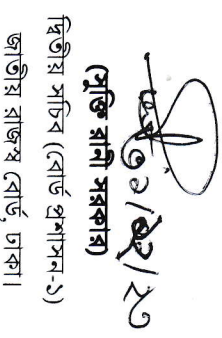 (মুক্তি রানী সরকার)
দ্বিতীয় সচিব (বোর্ড প্রশাসন-১)
জাতীয় রাজস্ব বোর্ড, ঢাকা।